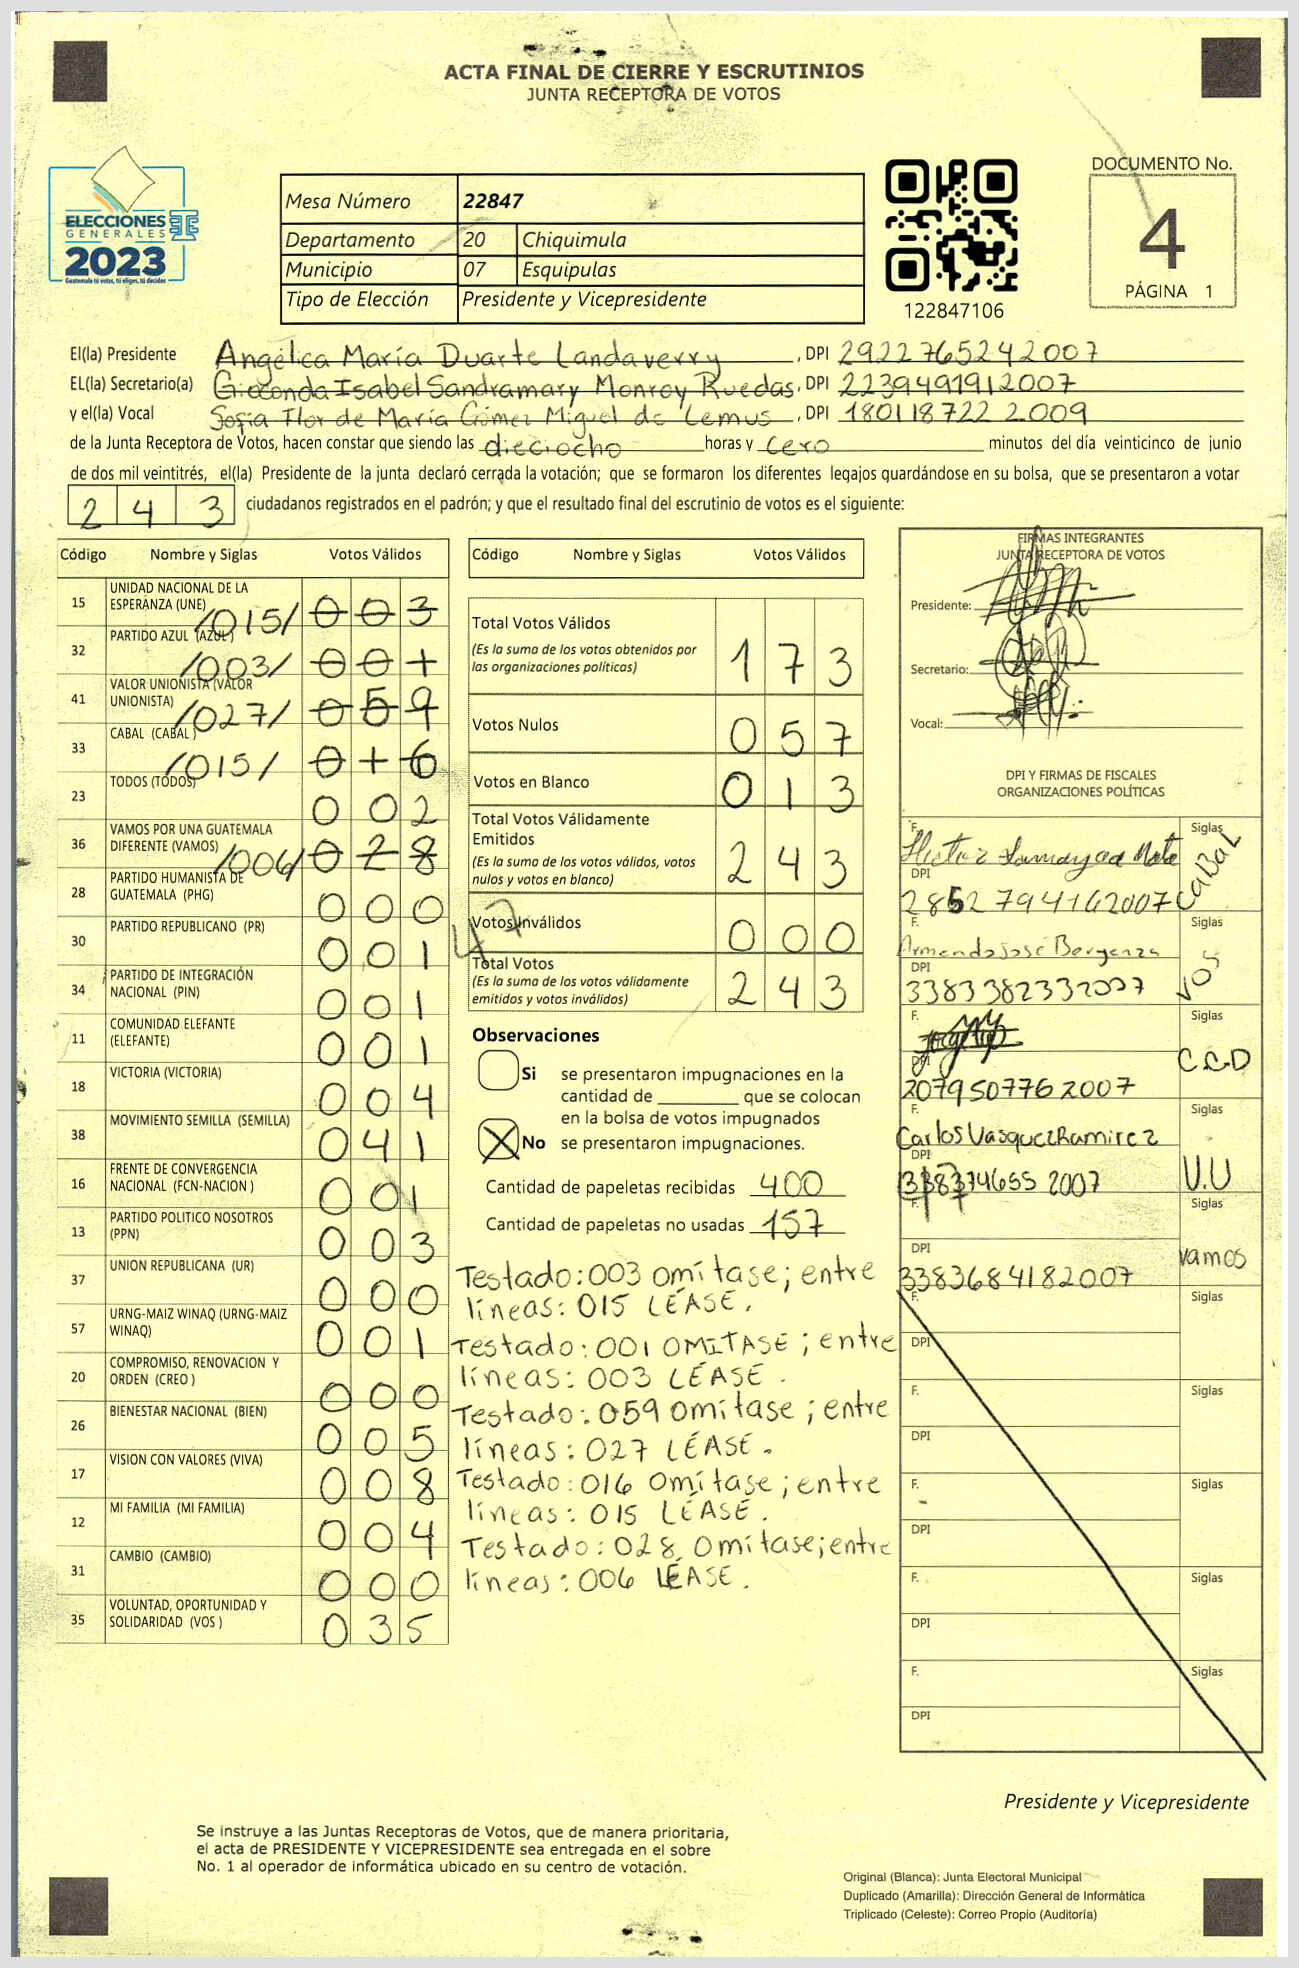 ACTA FINAL DE CIERRE Y ESCRUTINIOS
JUNTA RECEPTORA DE VOTOS
ELECCIONES
GENERALES
2023
Guatemala tú votas, tú eliges, tú decides
Mesa Número 22847
Departamento 20 Chiquimula
Municipio 07 Esquipulas
Tipo de Elección Presidente y Vicepresidente
122847106
DOCUMENTO No.
4
PÁGINA 1
El(la) Presidente Angélica María Duarte Landaverry, DPI 2922765242007
EL(la) Secretario(a) Gioconda Isabel Sandramary Monroy Ruedas, DPI 2239491912007
y el(la) Vocal Sofía Flor de María Gómez Miguel de Lemus, DPI 180118722 2009
de la Junta Receptora de Votos, hacen constar que siendo las dieciocho horas y cero minutos del día veinticinco de junio
de dos mil veintitrés, el(la) Presidente de la junta declaró cerrada la votación; que se formaron los diferentes legajos guardándose en su bolsa, que se presentaron a votar
2 4 3 ciudadanos registrados en el padrón; y que el resultado final del escrutinio de votos es el siguiente:
Código Nombre y Siglas Votos Válidos
15 UNIDAD NACIONAL DE LA
ESPERANZA (UNE) /015/ 0 0 3
32 PARTIDO AZUL (AZUL) /003/ 0 0 1
41 VALOR UNIONISTA (VALOR
UNIONISTA) /027/ 0 5 9
33 CABAL (CABAL) /015/ 0 1 6
23 TODOS (TODOS) 0 0 2
36 VAMOS POR UNA GUATEMALA
DIFERENTE (VAMOS) /006/ 0 2 8
28 PARTIDO HUMANISTA DE
GUATEMALA (PHG) 0 0 0
30 PARTIDO REPUBLICANO (PR) 0 0 1
34 PARTIDO DE INTEGRACIÓN
NACIONAL (PIN) 0 0 1
11 COMUNIDAD ELEFANTE
(ELEFANTE) 0 0 1
18 VICTORIA (VICTORIA) 0 0 4
38 MOVIMIENTO SEMILLA (SEMILLA) 0 4 1
16 FRENTE DE CONVERGENCIA
NACIONAL (FCN-NACION) 0 0 1
13 PARTIDO POLITICO NOSOTROS
(PPN) 0 0 3
37 UNION REPUBLICANA (UR) 0 0 0
57 URNG-MAIZ WINAQ (URNG-MAIZ
WINAQ) 0 0 1
20 COMPROMISO, RENOVACION Y
ORDEN (CREO) 0 0 0
26 BIENESTAR NACIONAL (BIEN) 0 0 5
17 VISION CON VALORES (VIVA) 0 0 8
12 MI FAMILIA (MI FAMILIA) 0 0 4
31 CAMBIO (CAMBIO) 0 0 0
35 VOLUNTAD, OPORTUNIDAD Y
SOLIDARIDAD (VOS) 0 3 5
Código Nombre y Siglas Votos Válidos
Total Votos Válidos 1 7 3
(Es la suma de los votos obtenidos por
las organizaciones políticas)
Votos Nulos 0 5 7
Votos en Blanco 0 1 3
Total Votos Válidamente
Emitidos 2 4 3
(Es la suma de los votos válidos, votos
nulos y votos en blanco)
47
Votos Inválidos 0 0 0
Total Votos 2 4 3
(Es la suma de los votos válidamente
emitidos y votos inválidos)
Observaciones
Si se presentaron impugnaciones en la
cantidad de ________ que se colocan
en la bolsa de votos impugnados
X No se presentaron impugnaciones.
Cantidad de papeletas recibidas 400
Cantidad de papeletas no usadas 157
Testado: 003 omítase; entre
líneas: 015 LÉASE.
Testado: 001 OMITASE; entre
líneas: 003 LÉASE.
Testado: 059 omítase; entre
líneas: 027 LÉASE.
Testado: 016 omítase; entre
líneas: 015 LÉASE.
Testado: 028, omítase; entre
líneas: 006 LÉASE.
FIRMAS INTEGRANTES
JUNTA RECEPTORA DE VOTOS
Presidente:
Secretario:
Vocal:
DPI Y FIRMAS DE FISCALES
ORGANIZACIONES POLÍTICAS
F. Hector Siglas CABAL
DPI 2852 794162007
F. Armando José Berganza Siglas VOS
DPI 3383382332007
F. Siglas C.C.D
DPI 2079507762007
F. Carlos Vasquez Ramirez Siglas V.U
DPI 3383374655 2007
F. Siglas vamos
DPI 3383684182007
F. Siglas
DPI
F. Siglas
DPI
F. Siglas
DPI
F. Siglas
DPI
F. Siglas
DPI
Presidente y Vicepresidente
Se instruye a las Juntas Receptoras de Votos, que de manera prioritaria,
el acta de PRESIDENTE Y VICEPRESIDENTE sea entregada en el sobre
No. 1 al operador de informática ubicado en su centro de votación.
Original (Blanca): Junta Electoral Municipal
Duplicado (Amarilla): Dirección General de Informática
Triplicado (Celeste): Correo Propio (Auditoría)